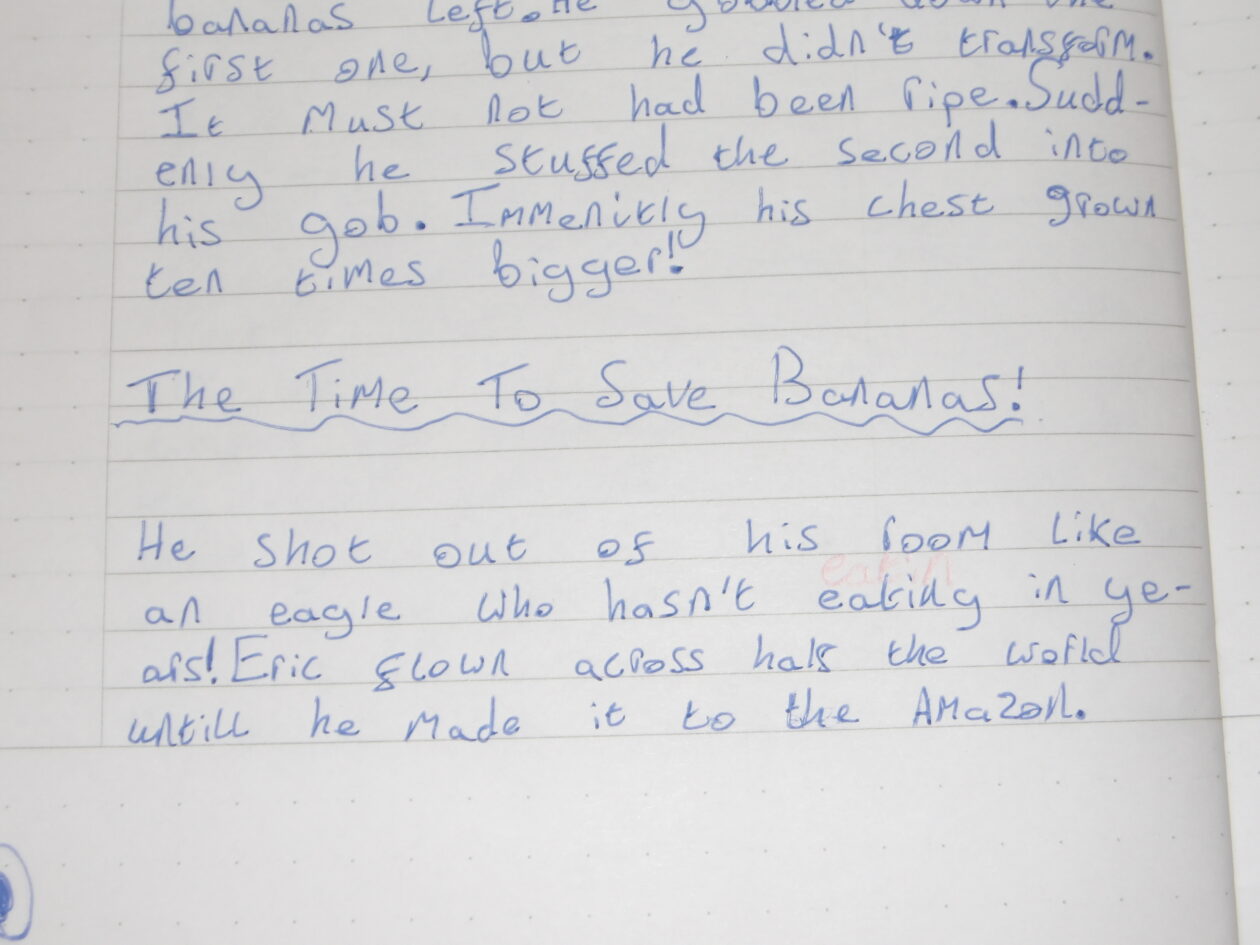 bananas left. He gobbled down the
first one, but he didn't transform.
It must not had been ripe. Sudd-
enly he stuffed the second into
his gob. Immenitly his chest grown
ten times bigger!
The Time To Save Bananas!
He shot out of his room like
eatin
an eagle who hasn't eating in ye-
ars! Eric flown across half the world
untill he made it to the Amazon.